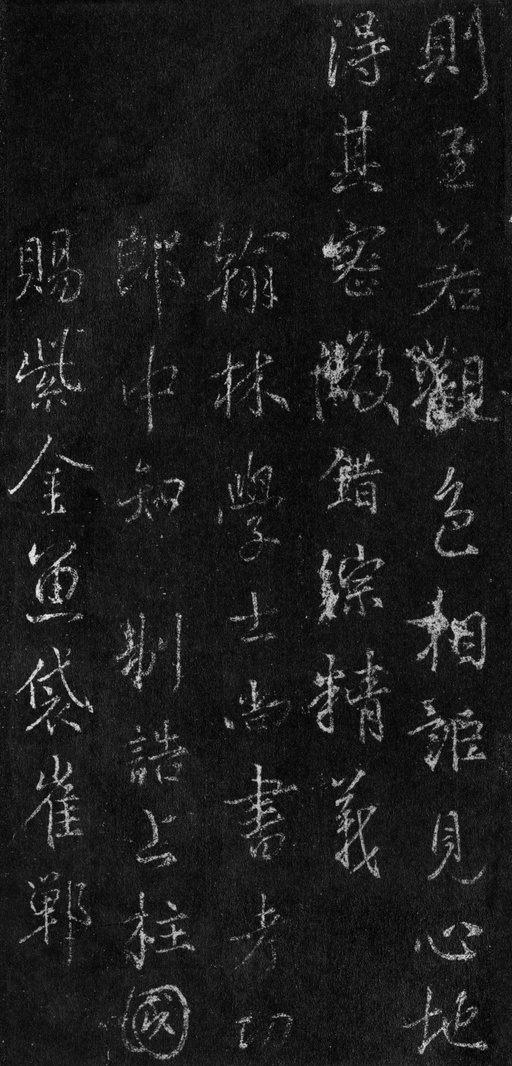 則並若觀色相誰見心地
得其密緻錯綜精義
翰林學士尚書考功
郎中知制誥上柱國
賜紫金魚袋崔鄲